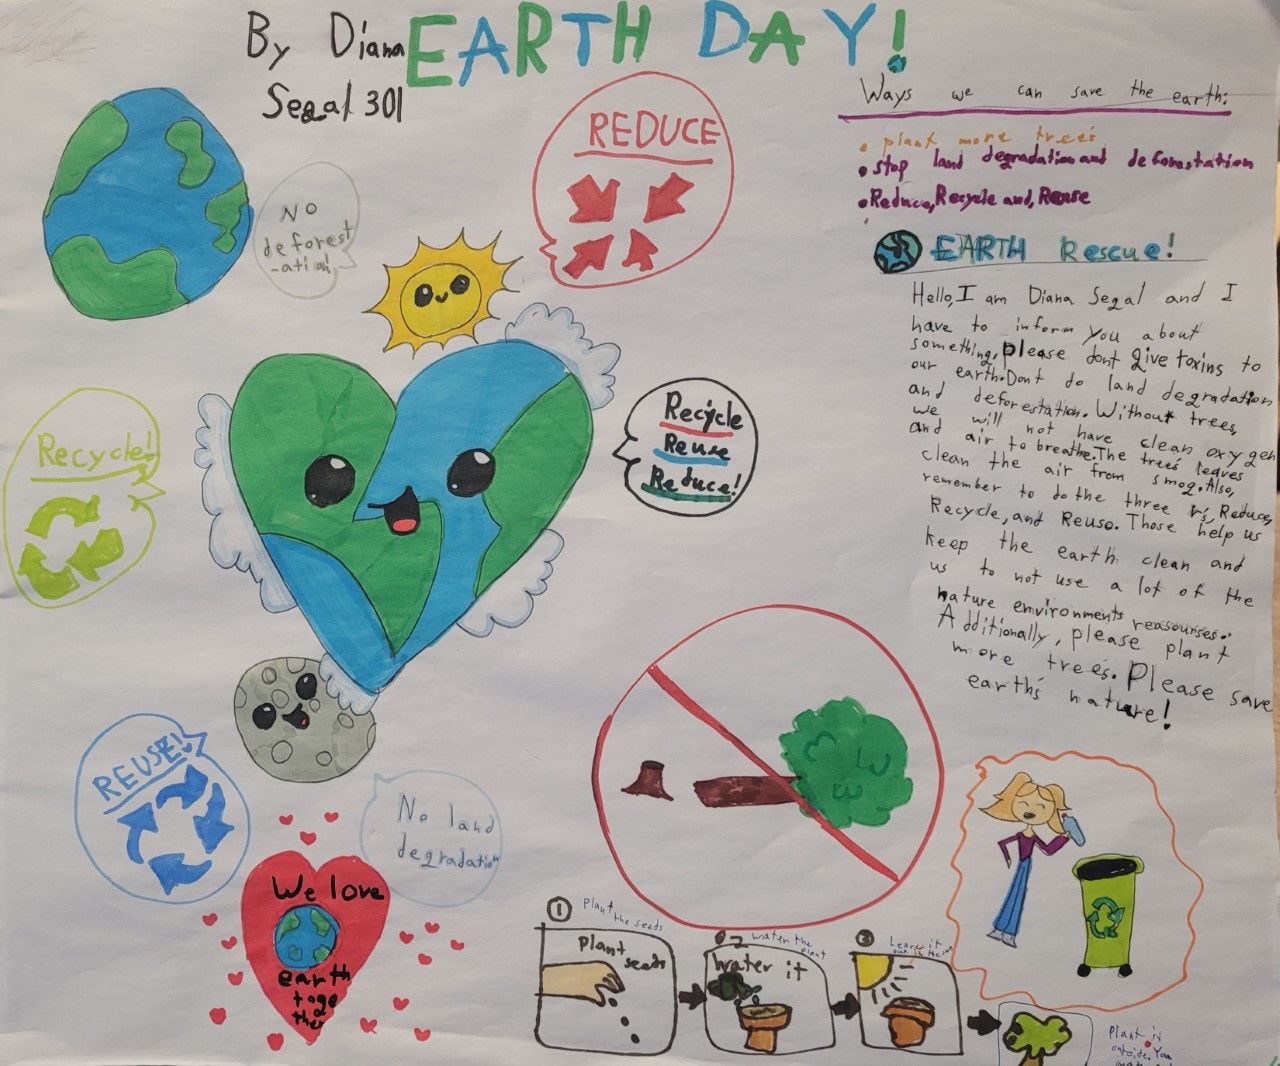 By Diana
Segal 301
EARTH DAY!
Ways we can save the earth:
• plant more trees
• stop land degradation and deforestation
• Reduce, Recycle and, Reuse
EARTH Rescue!
Hello, I am Diana Segal and I
have to inform you about
something, please dont give toxins to
our earth. Dont do land degradation
and deforestation. Without trees,
we will not have clean oxygen
and air to breathe. The trees leaves
clean the air from smog. Also,
remember to do the three r's, Reduce,
Recycle, and Reuse. Those help us
keep the earth clean and
us to not use a lot of the
nature environments reasourses.
Additionally, please plant
more trees. Please save
earth's nature!
REDUCE
NO
deforest
-ation!
Recycle!
Recycle
Reuse
Reduce!
REUSE!
No land
degradation
We love
earth
toge
ther
1 Plant the seeds
plant
seeds
2 water the plant
water it
3 Leave it
Plant it
outside. You